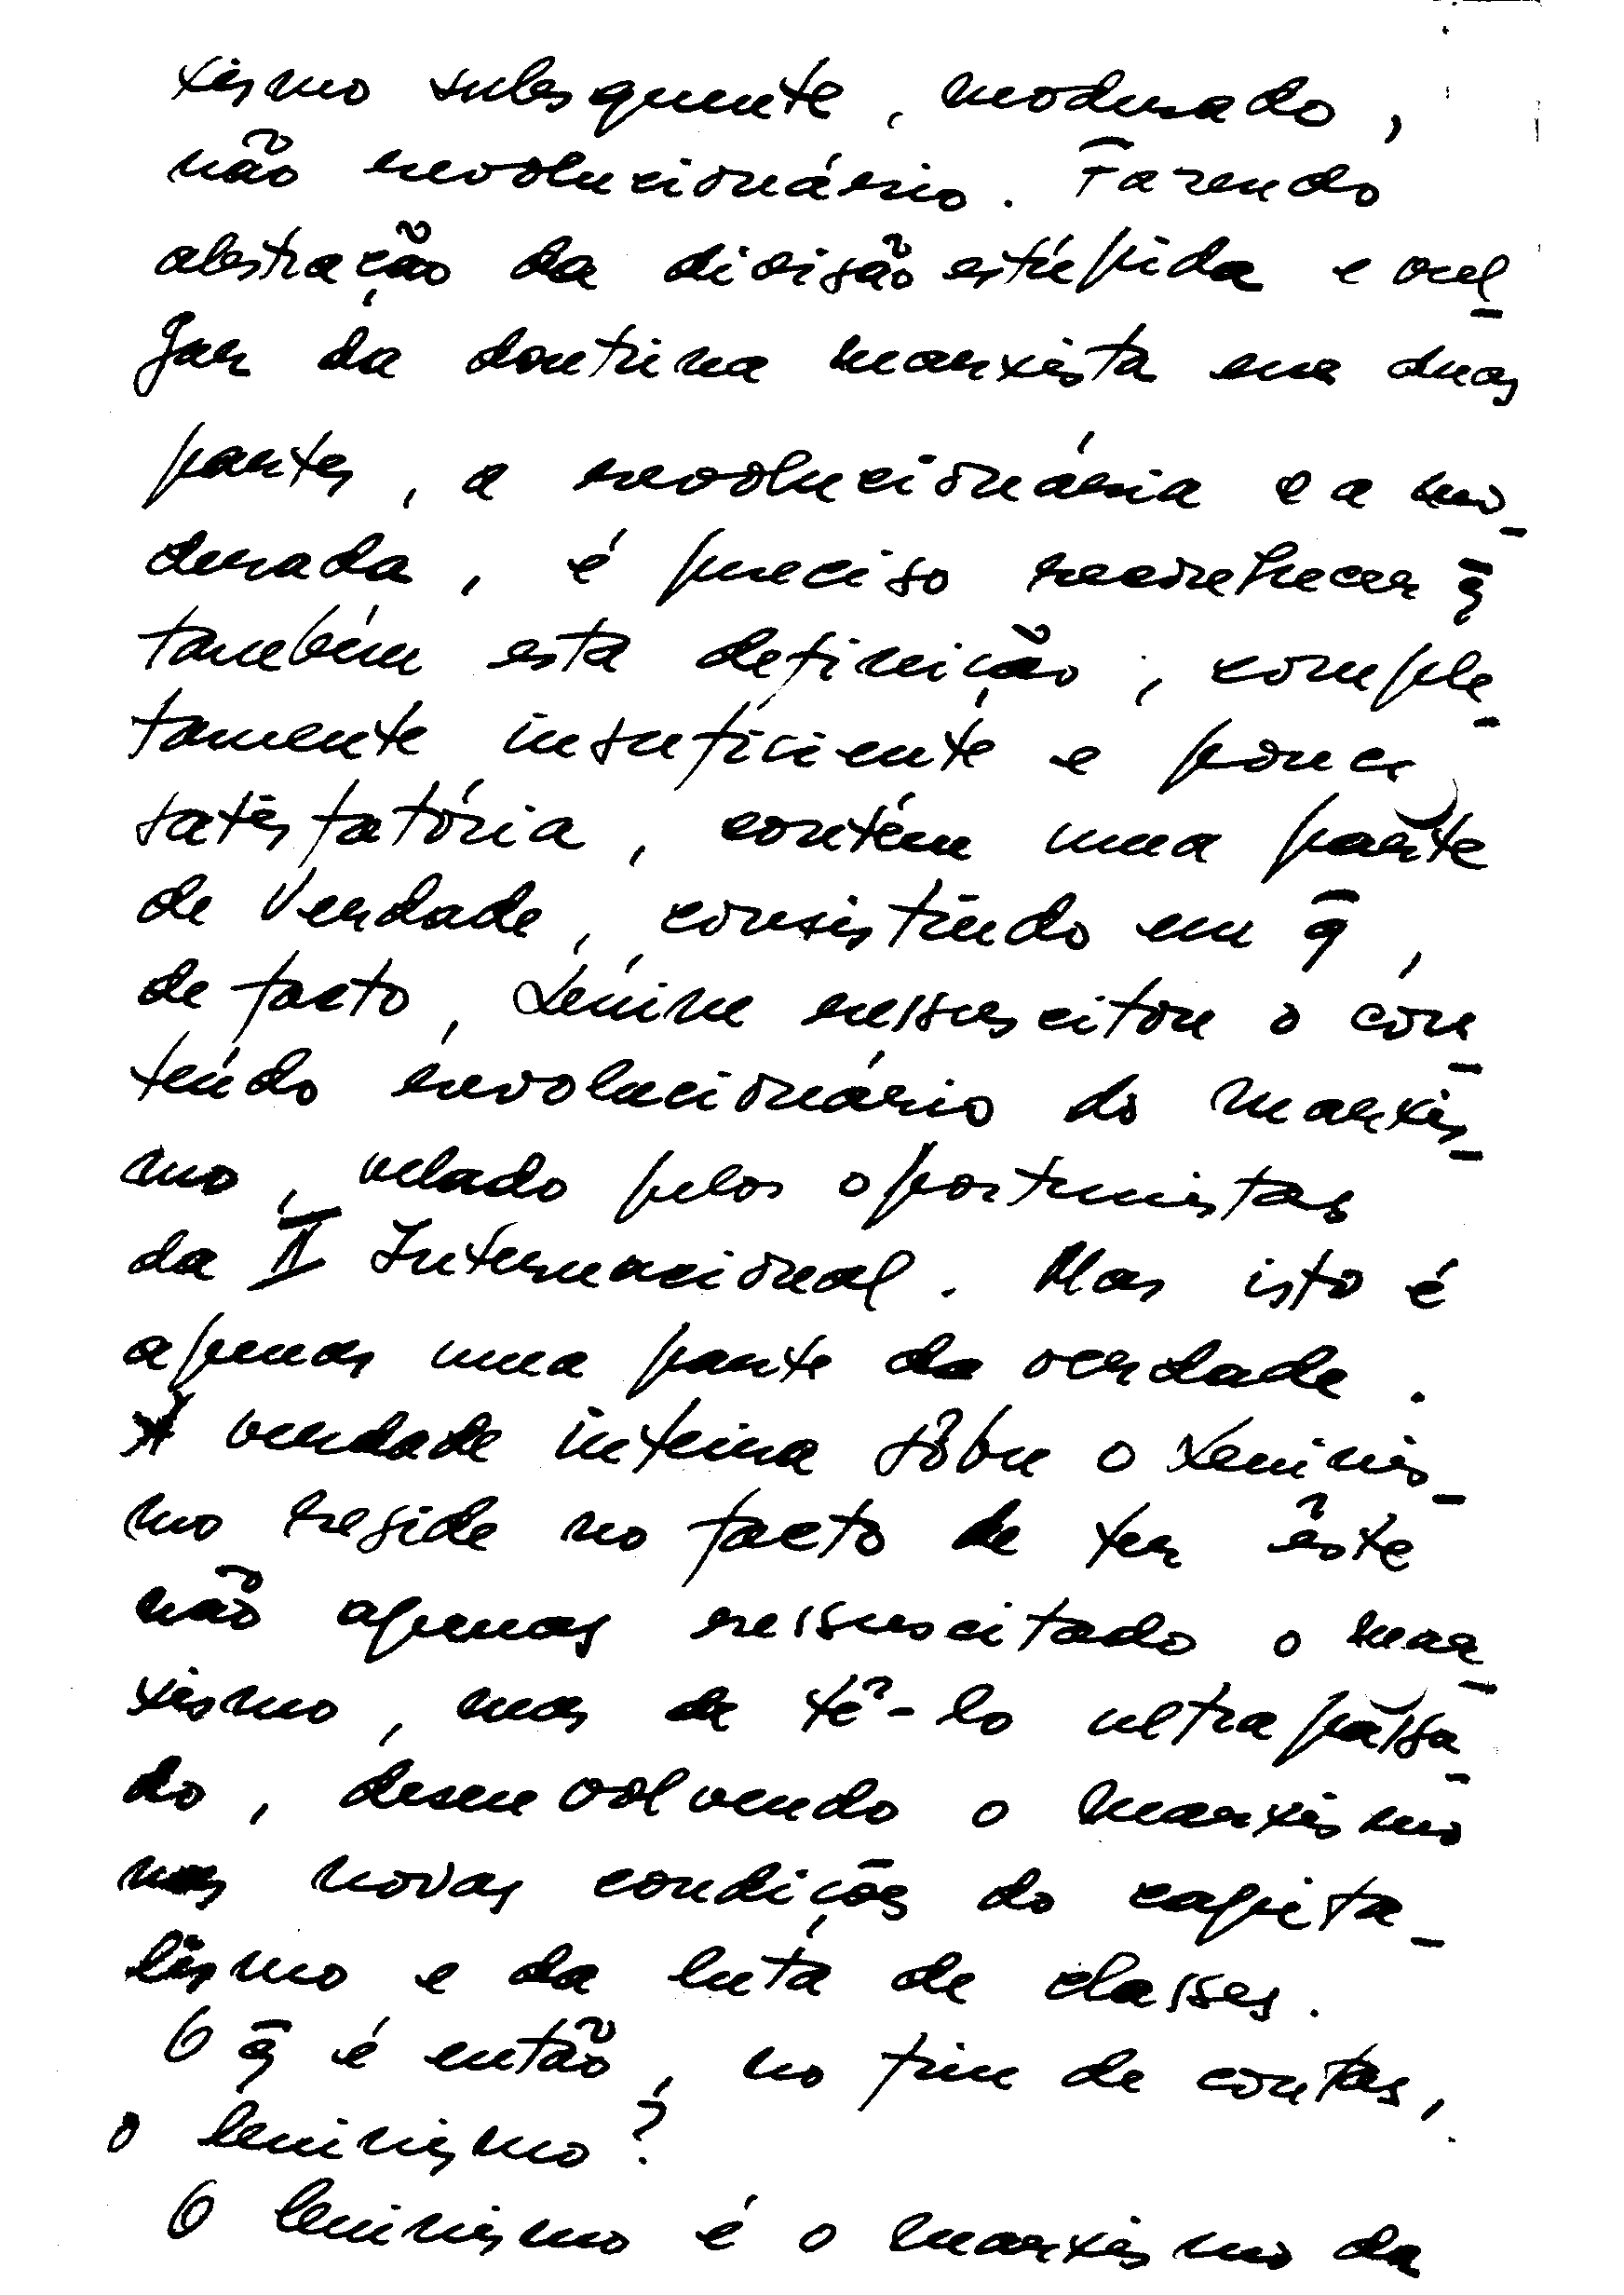 xismo subsquente, moderado,
não revolucionário. Fazendo
abstração da divisão estúpida e vul_
gar da doutrina marxista em duas
partes, a revolucionária e a mo_
derada, é preciso reconhecer q̄
também esta definição, comple_
tamente insuficiente e pouco
satisfatória, contém uma parte
de verdade, consistindo em q̄,
de facto, Lénine ressuscitou o con_
teúdo revolucionário do marxis_
mo, velado pelos oportunistas
da II Internacional. Mas isto é
apenas uma parte da verdade.
A verdade inteira sôbre o Leninis_
mo reside no facto de ter êste
não apenas ressuscitado o mar_
xismo, mas de tê-lo ultrapassa_
do, desenvolvendo o marxismo
nas novas condições do capita_
lismo e da luta de classes.
O q̄ é então, no fim de contas,
o leninismo?
O leninismo é o marxismo da